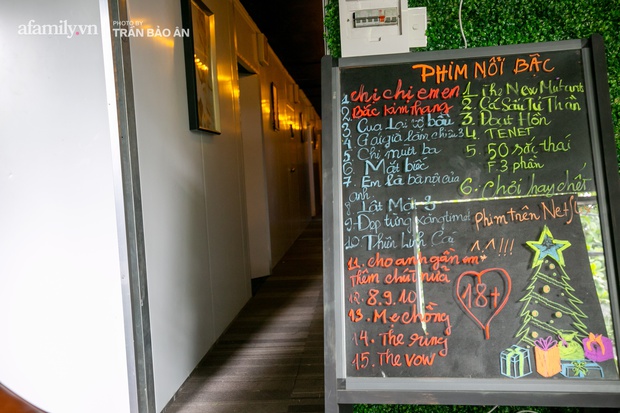 afamily.vn
PHOTO BY
TRẦN BẢO ÂN
PHIM NỔI BẬC
1 chị chị em em
2 Bắc kim thang
3 Cua lại vợ bầu
4 Gái già lắm chiêu 3
5 Chị mười ba
6 Mắt biếc
7. Em là bà nội của
anh
8 Lật Mặt 3
9 Đẹp từng xăngtimet
10 Thiên Linh Cái
11. cho anh gần em
thêm chút nữa
12. 8.9.10
13. Mẹ chồng
14. The rừng
15. The vow
1 The New Mutants
2. Cá Sấu Tử Thần
3. Đoạt Hồn
4. TENET
5. 50 sắc thái
F.3 phần
6. Chơi hay chết
Phim trên Netf
^^!!!
18+